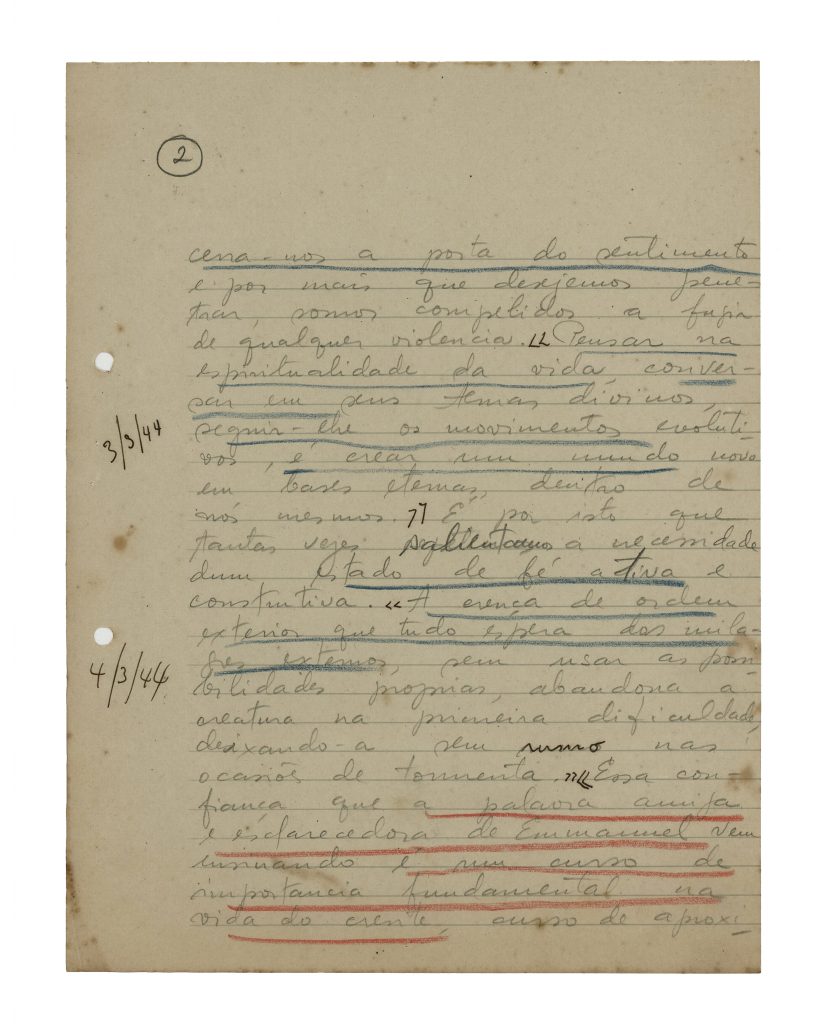 2
cerra-nos a porta do sentimento
e por mais que desejemos pene-
trar, somos compelidos a fugir
de qualquer violencia. "Pensar na
espiritualidade da vida, conver-
sar em seus temas divinos,
seguir-lhe os movimentos evoluti-
vos, é crear um mundo novo
em bases eternas, dentro de
3/3/44
nós mesmos." É por isto que
tantas vezes salientamos a necessidade
dum estado de fé ativa e
construtiva. "A crença de ordem
exterior que tudo espera dos mila-
gres externos, sem usar as possi-
4/3/44
bilidades proprias, abandona a
creatura na primeira dificuldade,
deixando-a sem rumo nas
ocasiões de tormenta." "Essa con-
fiança que a palavra amiga
e esclarecedora de Emmanuel vem
ensinando é um curso de
importancia fundamental na
vida do crente, curso de aproxi-